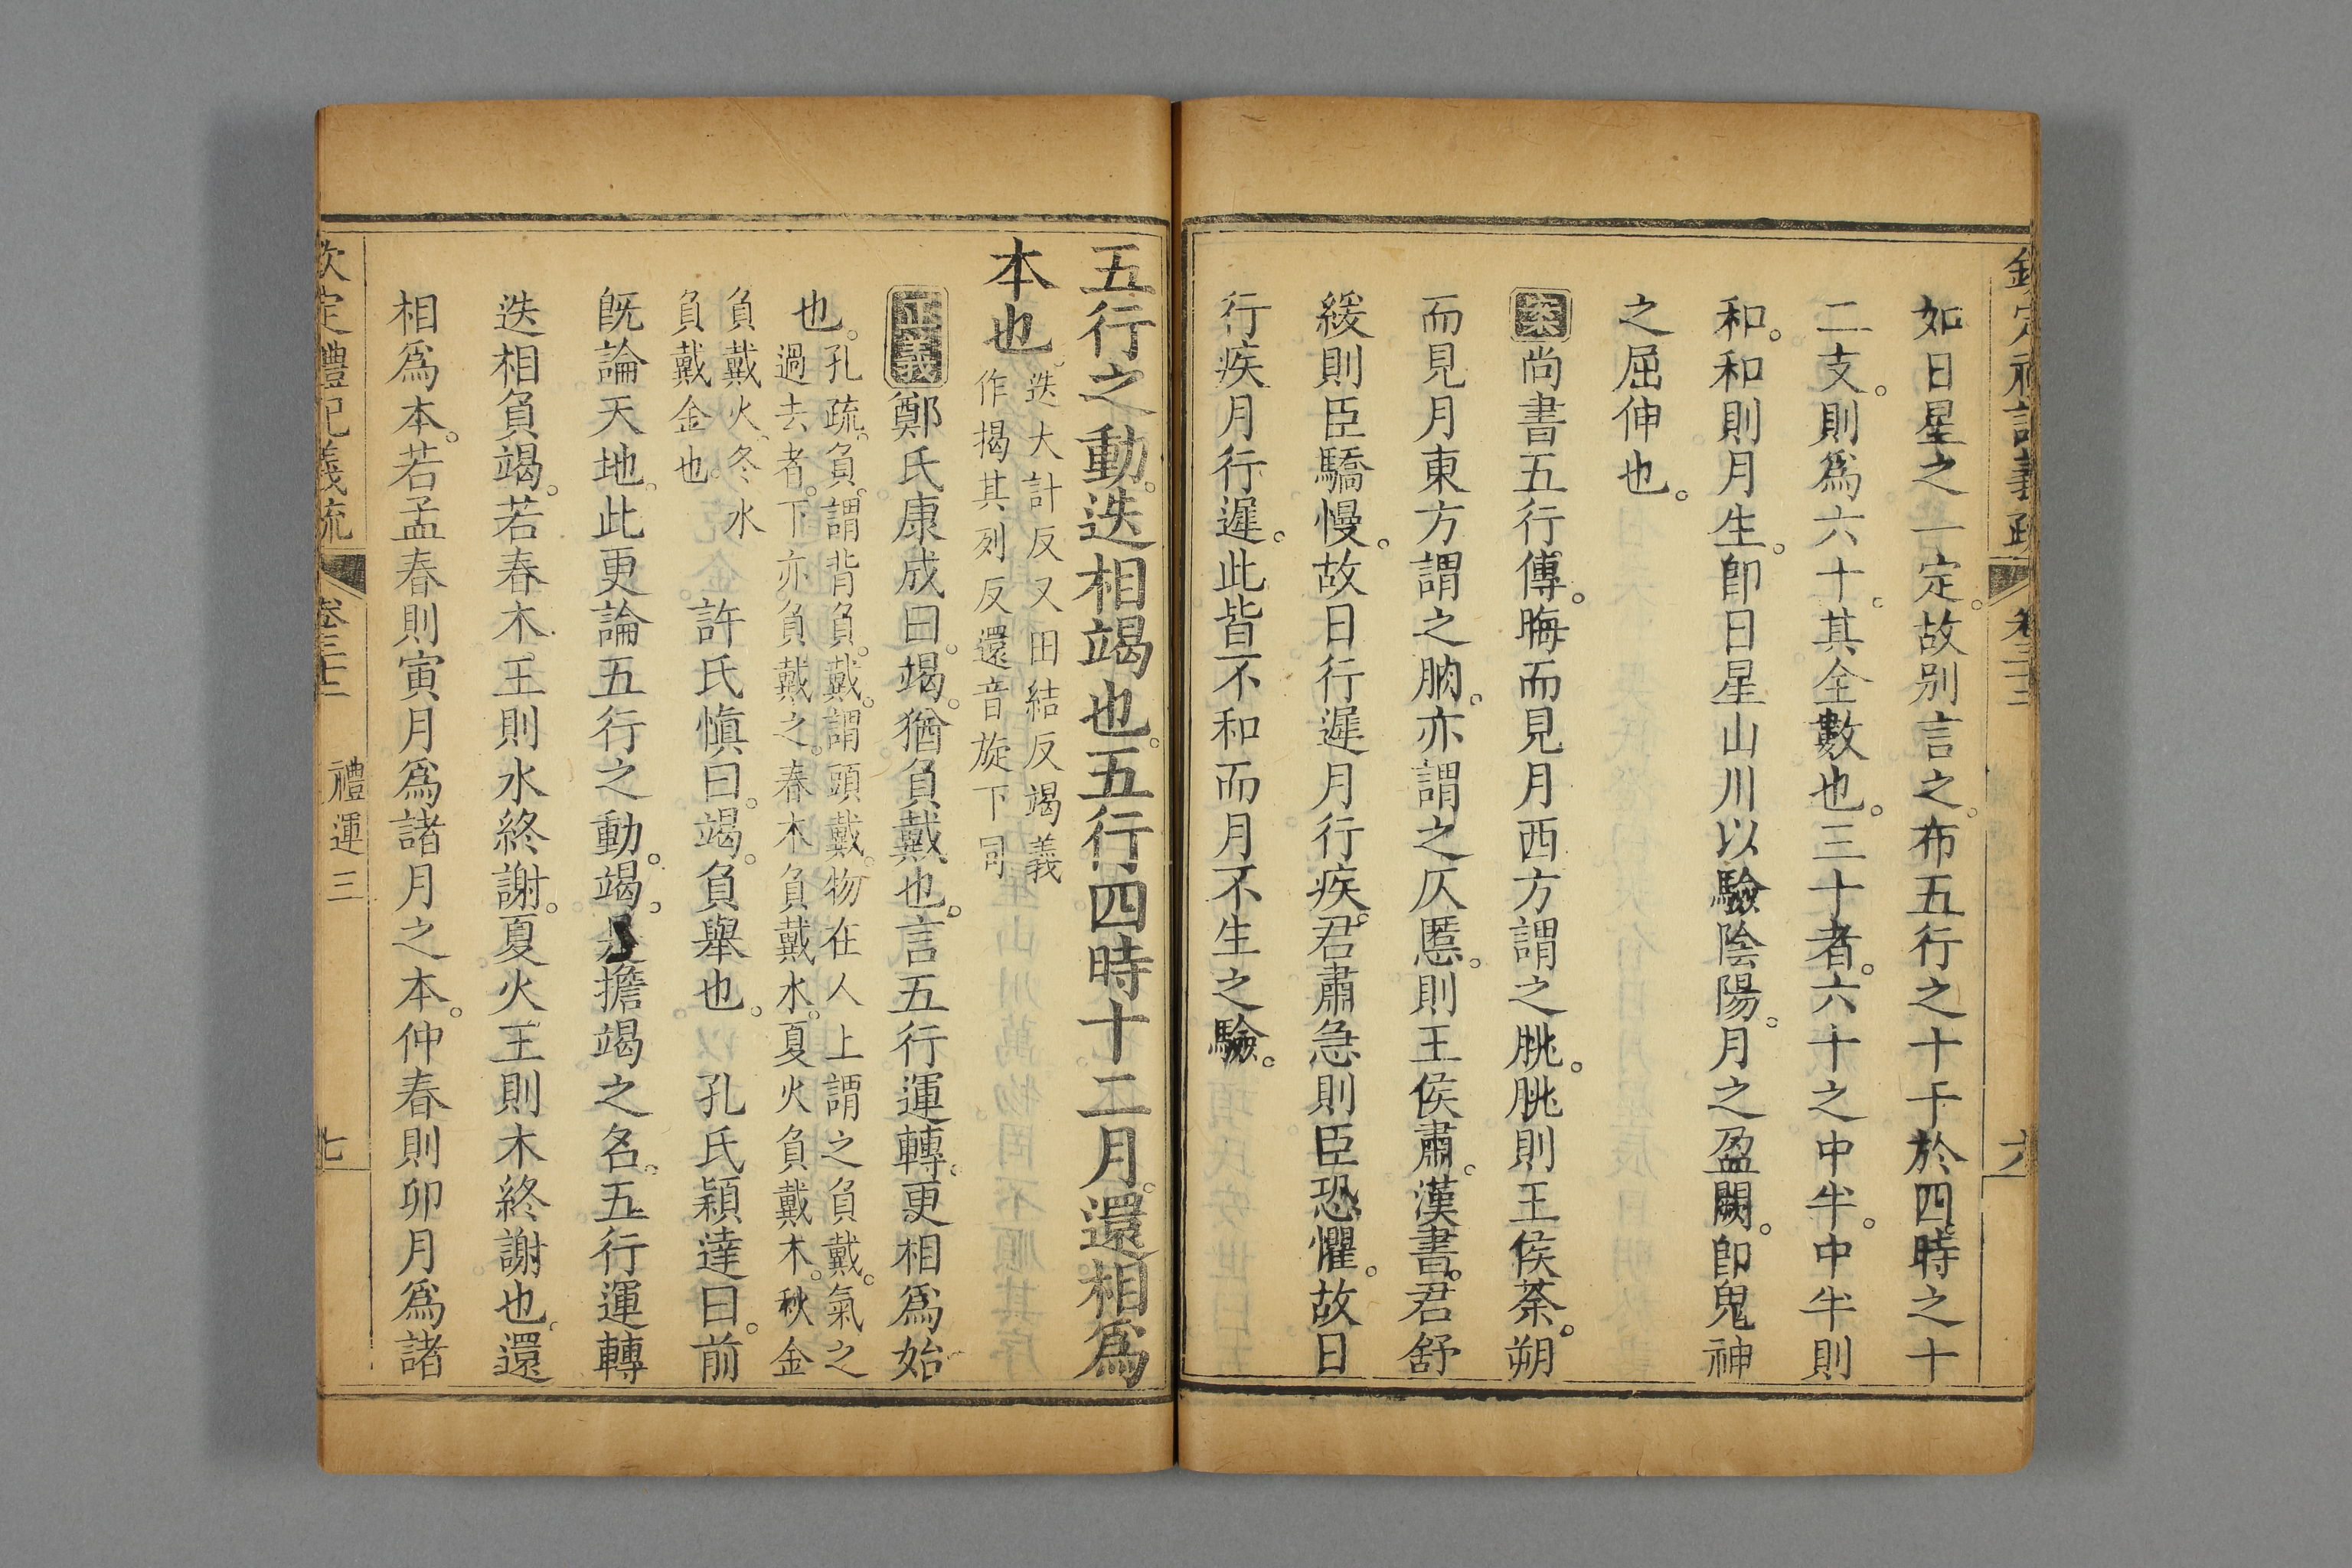 欽定禮記義疏 卷三十二 六
如日星之一定故别言之布五行之十干於四時之十
二支則爲六十其全數也三十者六十之中半中半則
和和則月生卽日星山川以驗陰陽月之盈闕卽鬼神
之屈伸也
案尚書五行傳晦而見月西方謂之朓朓則王侯荼朔
而見月東方謂之朒亦謂之仄慝則王侯肅漢書君舒
緩則臣驕慢故日行遲月行疾君肅急則臣恐懼故日
行疾月行遲此皆不和而月不生之驗
五行之動迭相竭也五行四時十二月還相爲
本也
迭大計反又田結反竭義
作揭其列反還音旋下同
正義鄭氏康成曰竭猶負戴也言五行運轉更相爲始
也
孔疏負謂背負戴謂頭戴物在人上謂之負戴氣之
過去者下亦負戴之春木負戴水夏火負戴木秋金
負戴火冬水
負戴金也
許氏愼曰竭負舉也 孔氏穎達曰前
旣論天地此更論五行之動竭是擔竭之名五行運轉
迭相負竭若春木王則水終謝夏火王則木終謝也還
相爲本若孟春則寅月爲諸月之本仲春則卯月爲諸
欽定禮記義疏 卷三十二 禮運三 七